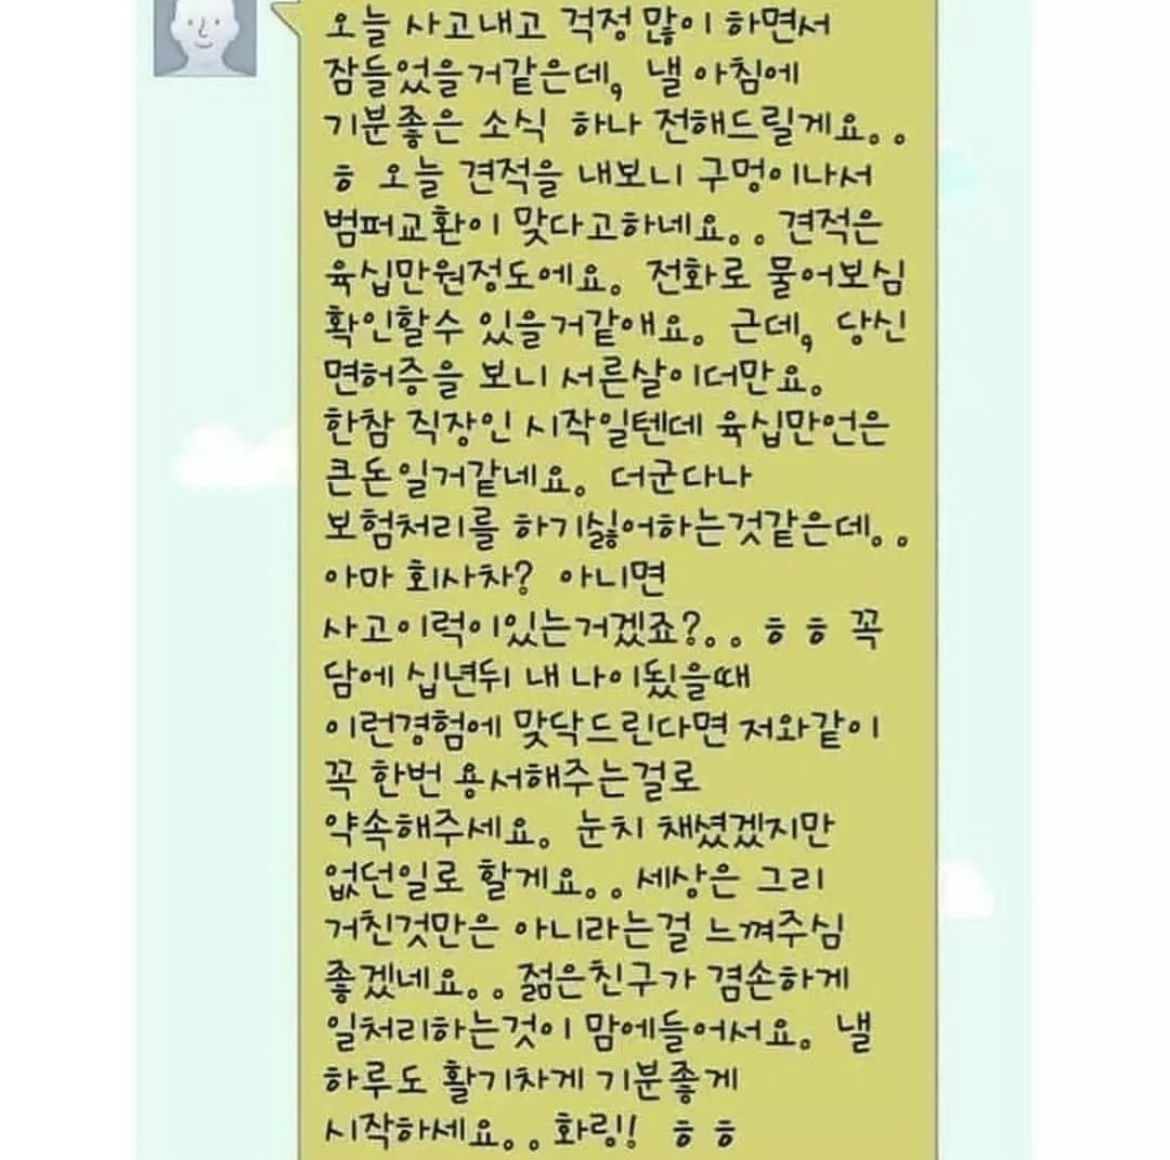 오늘 사고내고 걱정 많이 하면서
잠들었을거같은데, 낼 아침에
기분좋은 소식 하나 전해드릴게요..
ㅎ 오늘 견적을 내보니 구멍이나서
범퍼교환이 맞다고하네요.. 견적은
육십만원정도에요. 전화로 물어보심
확인할수 있을거같애요. 근데, 당신
면허증을 보니 서른살이더만요.
한참 직장인 시작일텐데 육십만언은
큰돈일거같네요. 더군다나
보험처리를 하기싫어하는것같은데..
아마 회사차? 아니면
사고이럭이있는거겠죠?.. ㅎㅎ 꼭
담에 십년뒤 내 나이됬을때
이런경험에 맞닥드린다면 저와같이
꼭 한번 용서해주는걸로
약속해주세요. 눈치 채셨겠지만
없던일로 할게요.. 세상은 그리
거친것만은 아니라는걸 느껴주심
좋겠네요.. 젊은친구가 겸손하게
일처리하는것이 맘에들어서요. 낼
하루도 활기차게 기분좋게
시작하세요.. 화링! ㅎㅎ